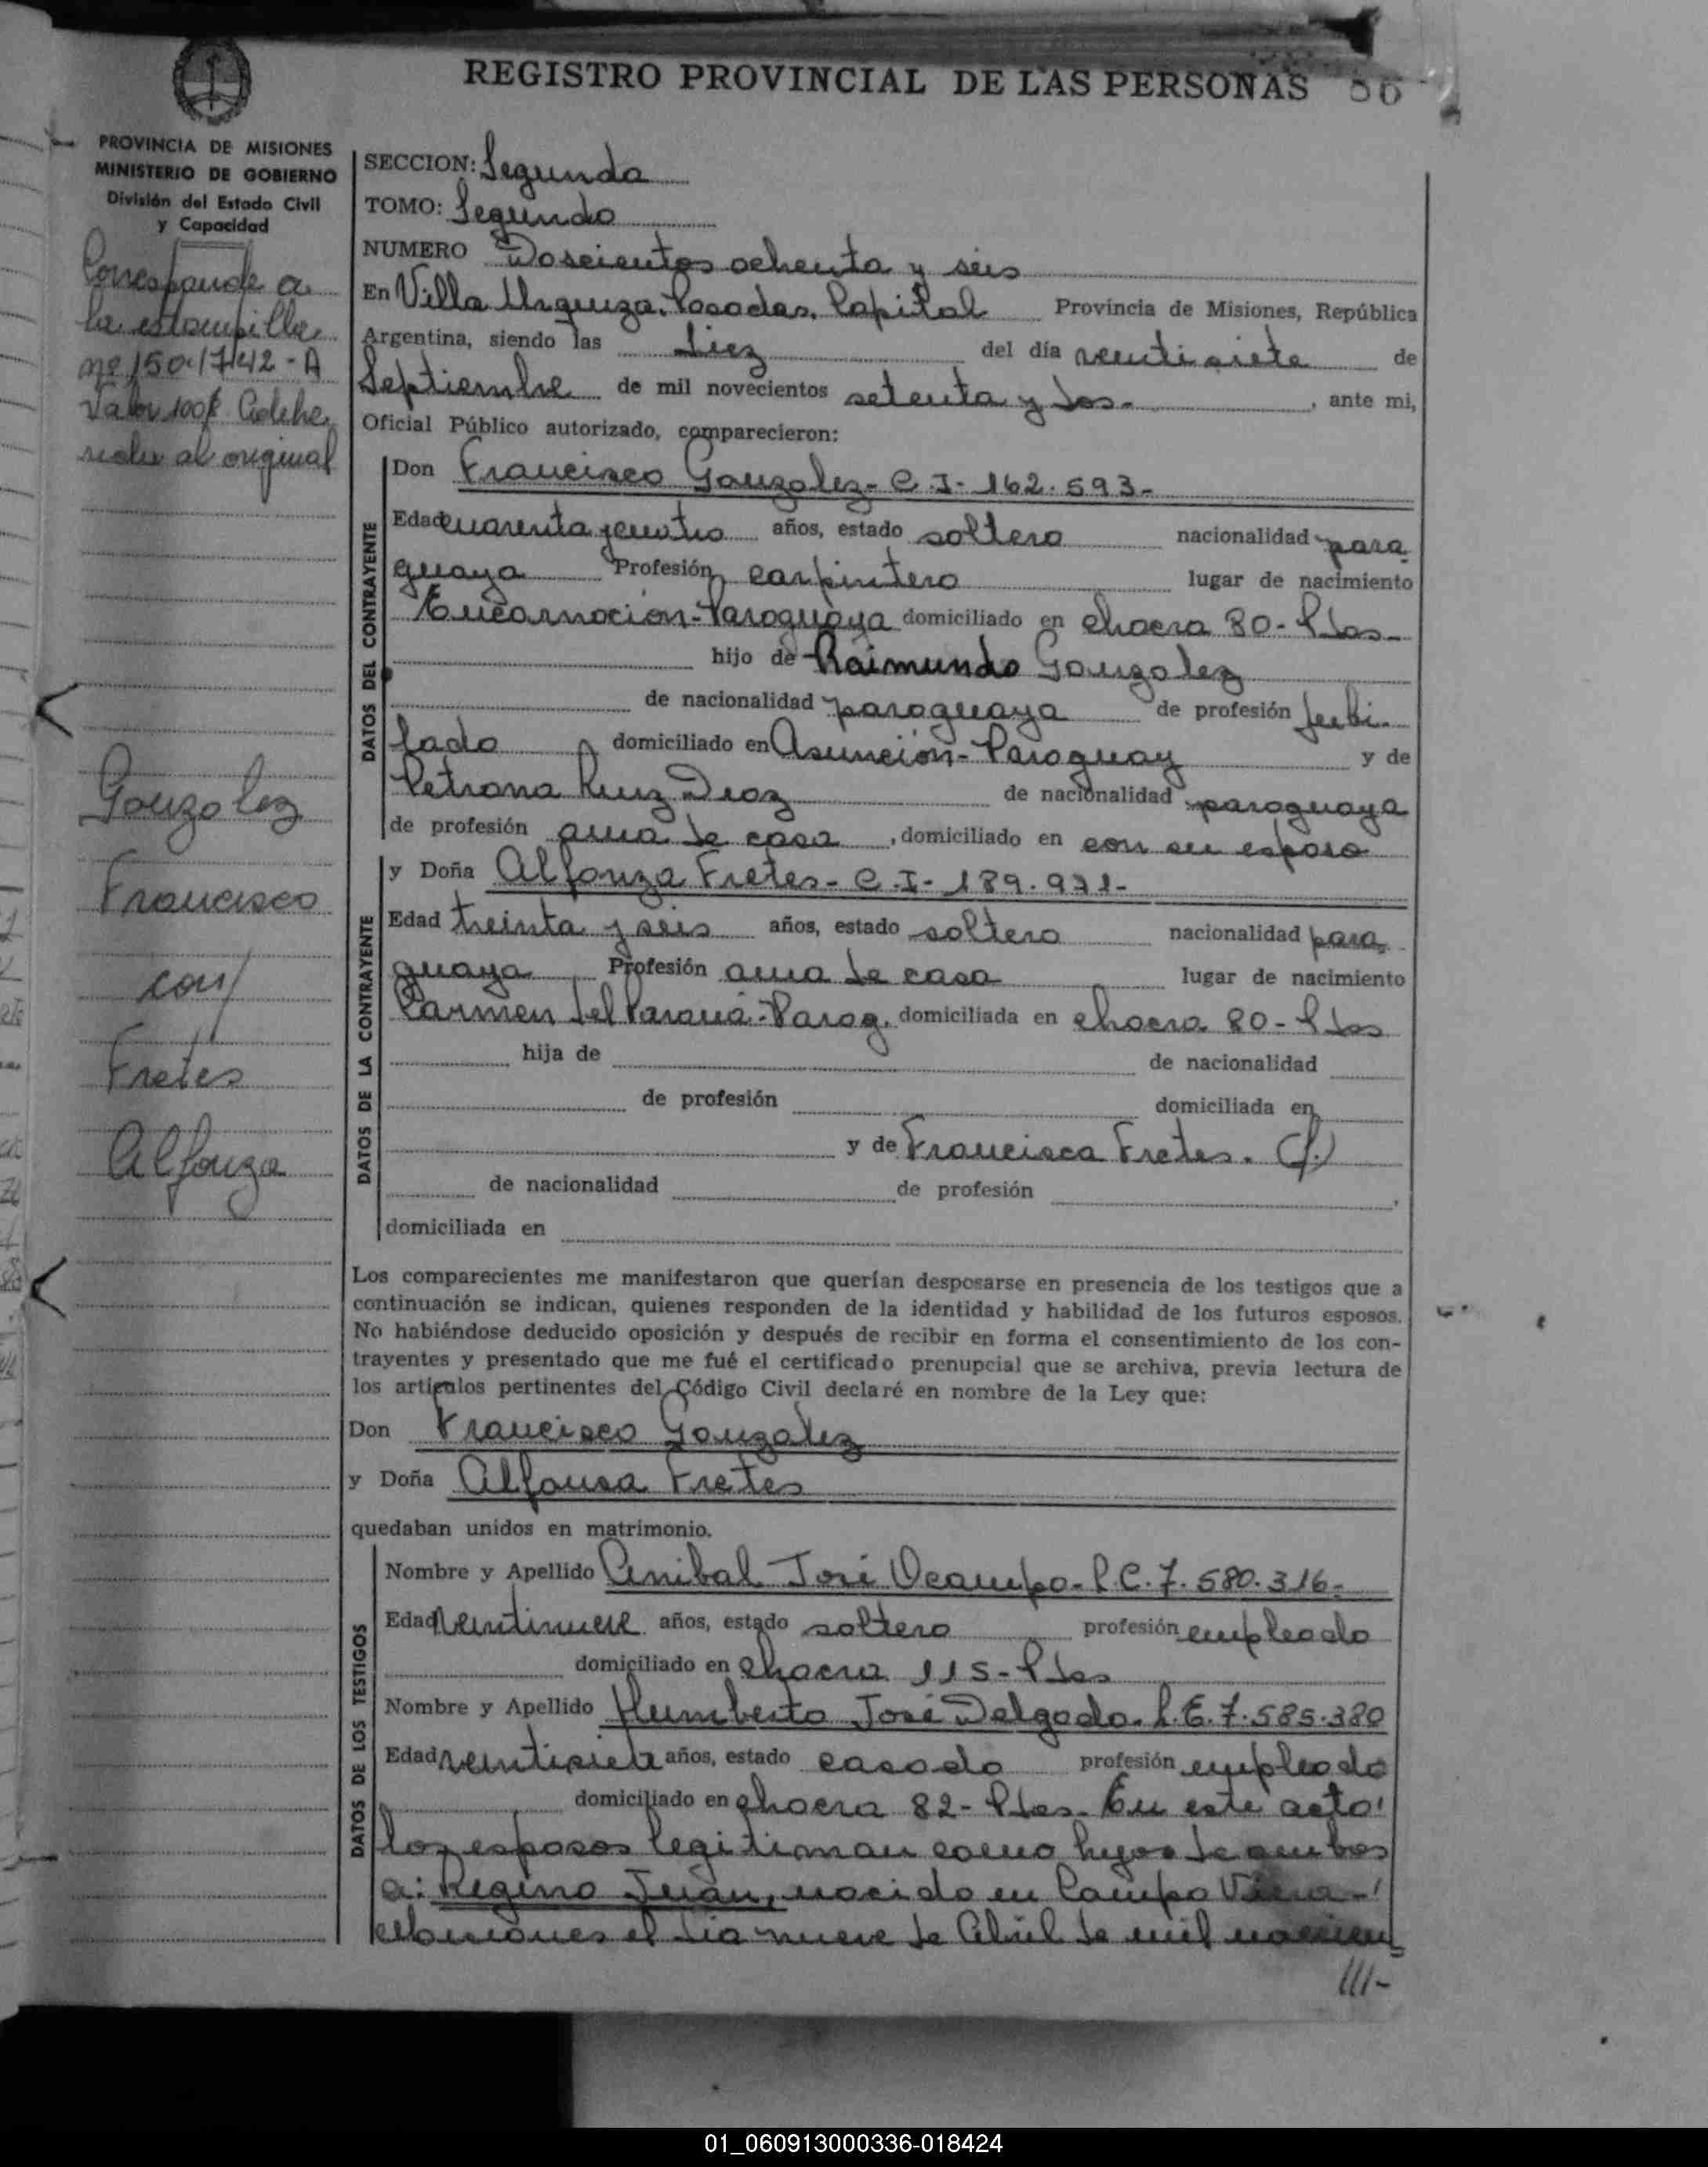 REGISTRO PROVINCIAL DE LAS PERSONAS 86
PROVINCIA DE MISIONES
MINISTERIO DE GOBIERNO
División del Estado Civil
y Capacidad
Corresponde a
la estampilla
nº 1501742-A
Valor 100$ Adhe
rida al original
Gonzalez
Francisco
con
Fretes
Alfonza
SECCION: Segunda
TOMO: Segundo
NUMERO Doscientos ochenta y seis
En Villa Urquiza, Posadas, Capital Provincia de Misiones, República
Argentina, siendo las diez del día veintisiete de
Septiembre de mil novecientos setenta y dos.- , ante mi,
Oficial Público autorizado, comparecieron:
DATOS DEL CONTRAYENTE
Don Francisco Gonzalez- C.I- 162.593-
Edad cuarenta y cuatro años, estado soltero nacionalidad para
guaya Profesión carpintero lugar de nacimiento
Encarnación-Paraguaya domiciliado en chacra 80- Pdas-
hijo de Raimundo Gonzalez
de nacionalidad paraguaya de profesión jubi
lado domiciliado en Asunción- Paraguay y de
Petrona Ruiz Diaz de nacionalidad paraguaya
de profesión ama de casa , domiciliado en con su esposo
DATOS DE LA CONTRAYENTE
y Doña Alfonza Fretes- C.I- 189.931-
Edad treinta y seis años, estado soltera nacionalidad para
guaya Profesión ama de casa lugar de nacimiento
Carmen del Paraná-Parag. domiciliada en chacra 80- Pdas
hija de de nacionalidad
de profesión domiciliada en
y de Francisca Fretes. (f.)
de nacionalidad de profesión ,
domiciliada en
Los comparecientes me manifestaron que querían desposarse en presencia de los testigos que a
continuación se indican, quienes responden de la identidad y habilidad de los futuros esposos.
No habiéndose deducido oposición y después de recibir en forma el consentimiento de los con-
trayentes y presentado que me fué el certificado prenupcial que se archiva, previa lectura de
los artículos pertinentes del Código Civil declaré en nombre de la Ley que:
Don Francisco Gonzalez
y Doña Alfonsa Fretes
quedaban unidos en matrimonio.
DATOS DE LOS TESTIGOS
Nombre y Apellido Anibal José Ocampo- L.E. 7.580.316-
Edad veintinueve años, estado soltero profesión empleado
domiciliado en chacra 115- Pdas
Nombre y Apellido Humberto José Delgado. L.E. 7.585.380
Edad veintisiete años, estado casado profesión empleado
domiciliado en chacra 82- Pdas. En este acto
los esposos legitiman como hijos de ambos
a: Regino Juan, nacido en Campo Viera-
Misiones el dia nueve de Abril de mil novecien
///-
01_060913000336-018424